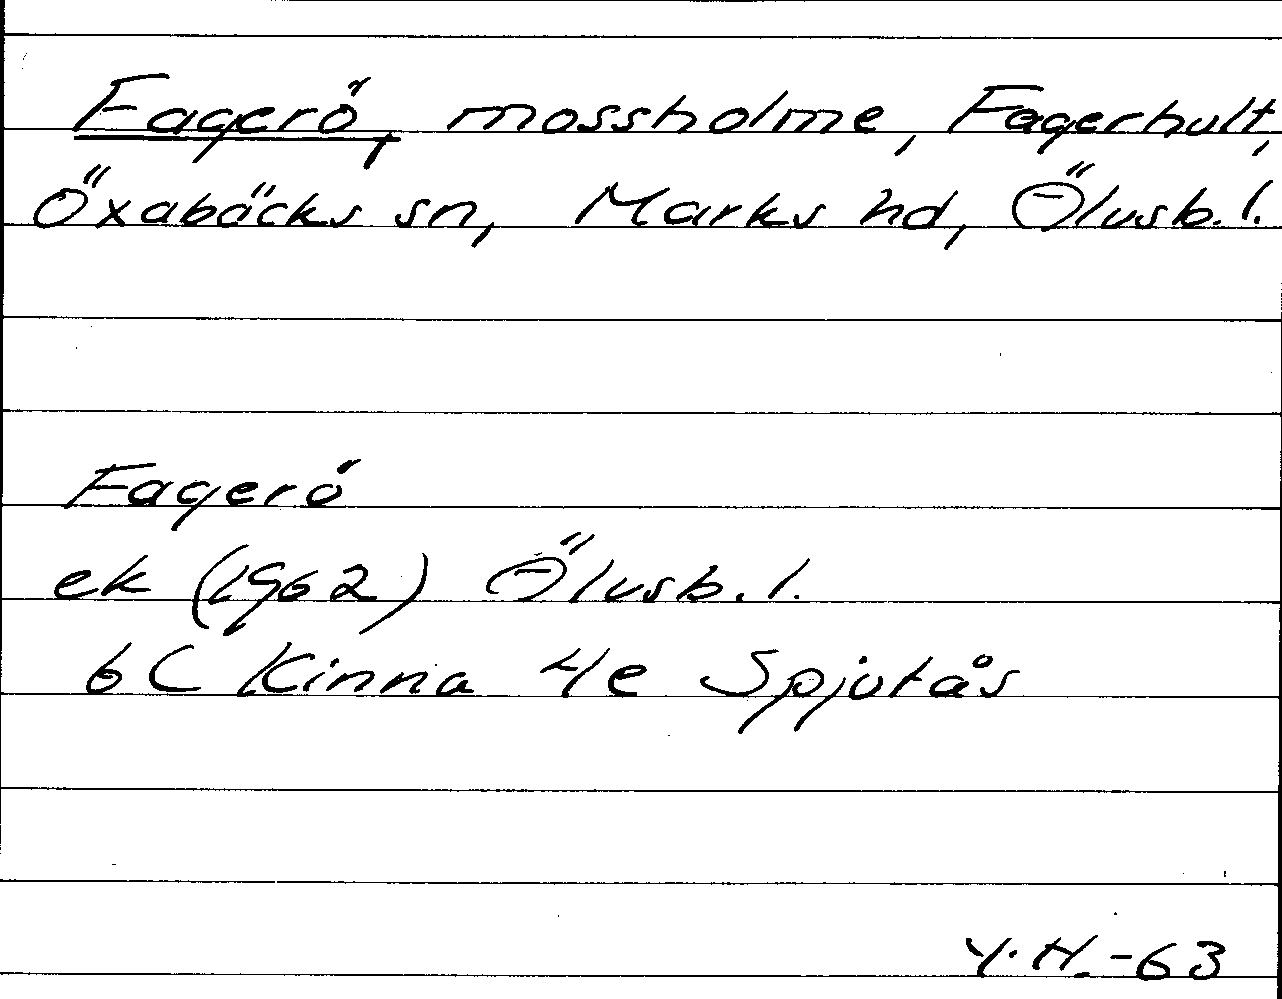 Fagerö, mossholme, Fagerhult,
Öxabäcks sn, Marks hd, Älvsb. l.
Fagerö
ek (1962) Älvsb. l.
6C Kinna 4e Spjutås
Y.H. -63